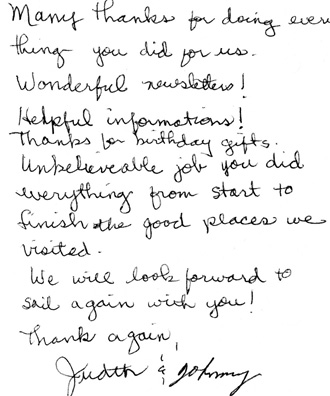 Many thanks for doing every
thing you did for us.
Wonderful newsletters!
Helpful informations!
Thanks for birthday gifts.
Unbelieveable job you did
everything from start to
finish the good places we
visited.
We will look forward to
sail again with you!
Thank again,
Judith & Johnny